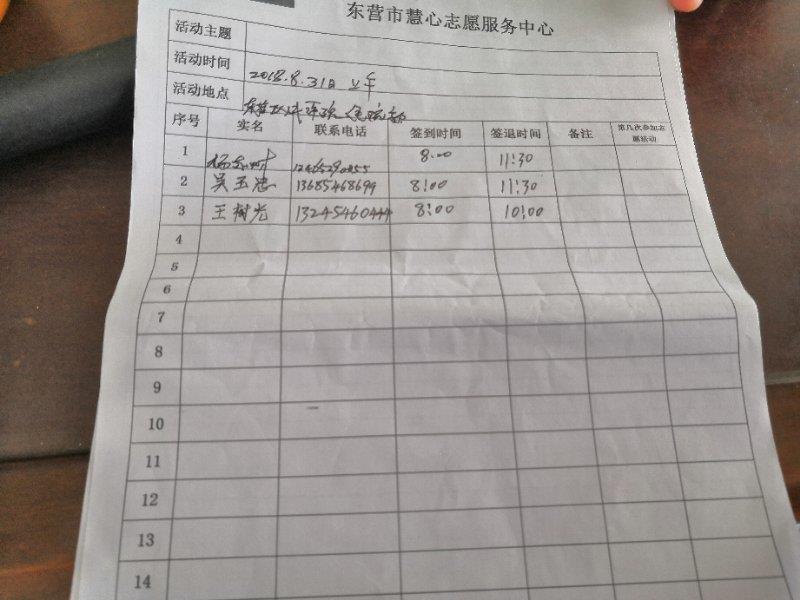 东营市慧心志愿服务中心
活动主题
活动时间 2018.8.31日 上午
活动地点
序号 实名 联系电话 签到时间 签退时间 备注 第几次参加志愿活动
1 8:00 11:30
2 吴玉忠 13685468699 8:00 11:30
3 王树光 13245460444 8:00 10:00
4
5
6
7
8
9
10
11
12
13
14